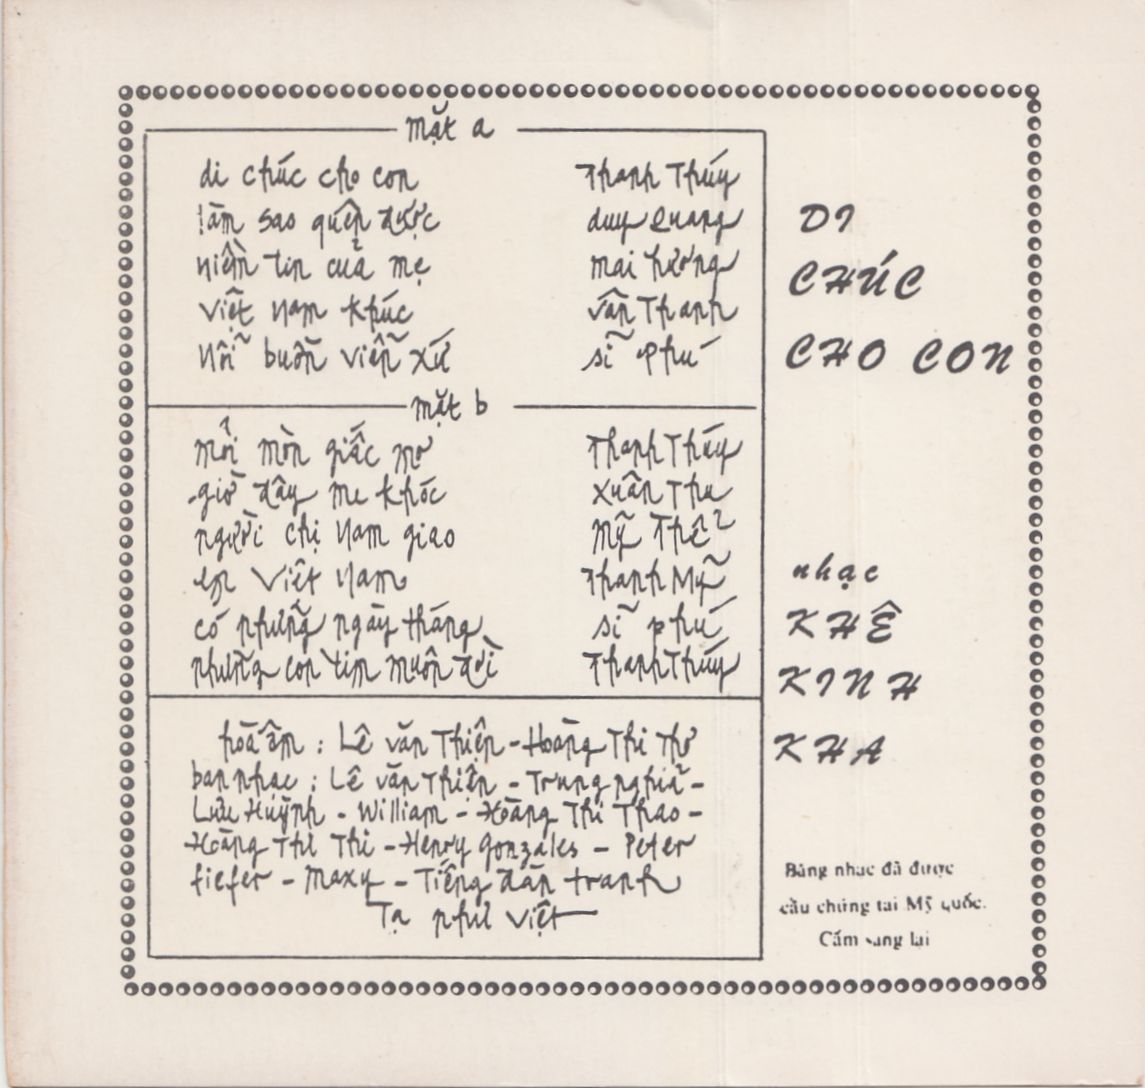 mặt a
di chúc cho con Thanh Thúy
làm sao quên được duy Quang
niềm tin của mẹ mai hương
việt nam khúc vân Thanh
nỗi buồn viễn xứ sĩ Phú
mặt b
mỏi mòn giấc mơ Thanh Thúy
giờ đây me khóc xuân Thu
người chị nam giao Mỹ Thể
em việt nam Thanh Mỹ
có những ngày tháng sĩ phú
những con tim muôn đời Thanh Thúy
hoà âm : Lê văn Thiện - Hoàng Thi Thơ
ban nhạc : Lê văn Thiện - Trung nghiã -
Lưu Huỳnh - William - Hoàng Thi Thao -
Hoàng Thi Thi - Henry Gonzales - Peter
fiefer - Maxy - Tiếng đàn tranh
Tạ phui việt
DI
CHÚC
CHO CON
nhạc
KHÊ
KINH
KHA
Băng nhạc đã được
cầu chứng tại Mỹ quốc.
Cấm sang lại